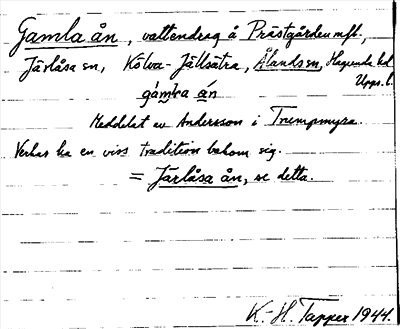 Gamla ån, vattendrag å Prästgården mfl.,
Järlåsa sn, Kölva-Jällsätra, Ålands sn, Hagunda hd
Upps. l.
gamla ån
Meddelat av Andersson i Trumpmyra.
Verkar ha en viss tradition bakom sig.
= Järlåsa ån, se detta.
K.-H. Tapper 1944.